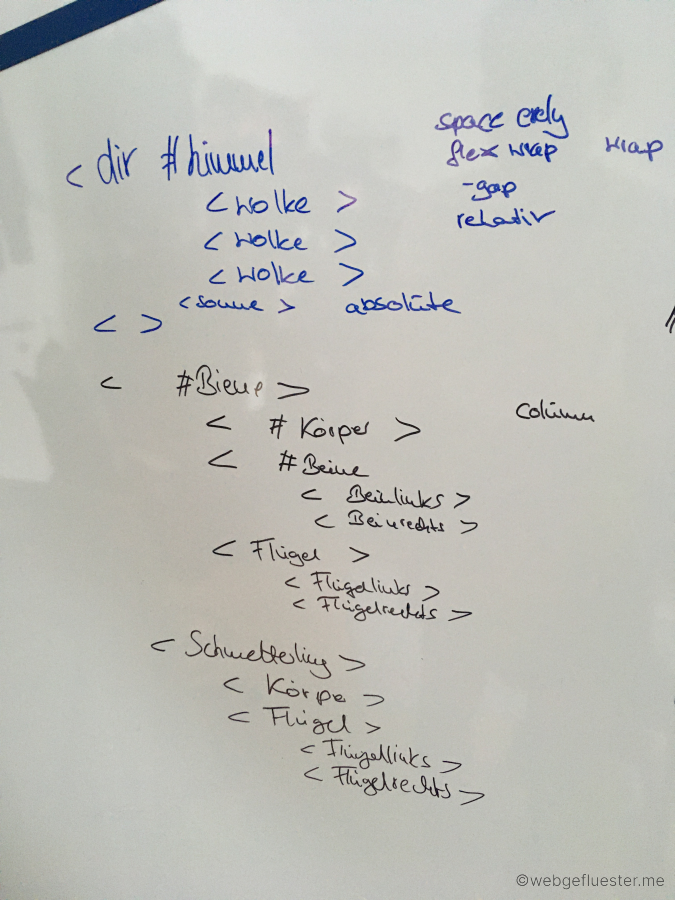 < div #himmel
space evenly
flex wrap wrap
-gap
relativ
< wolke >
< wolke >
< wolke >
< sonne > absolute
< >
< #Biene >
< # Körper > column
< #Beine
< Beinlinks >
< Beinrechts >
< Flügel >
< Flügellinks >
< Flügelrechts >
< Schmetterling >
< Körper >
< Flügel >
< Flügellinks >
< Flügelrechts >
©webgefluester.me